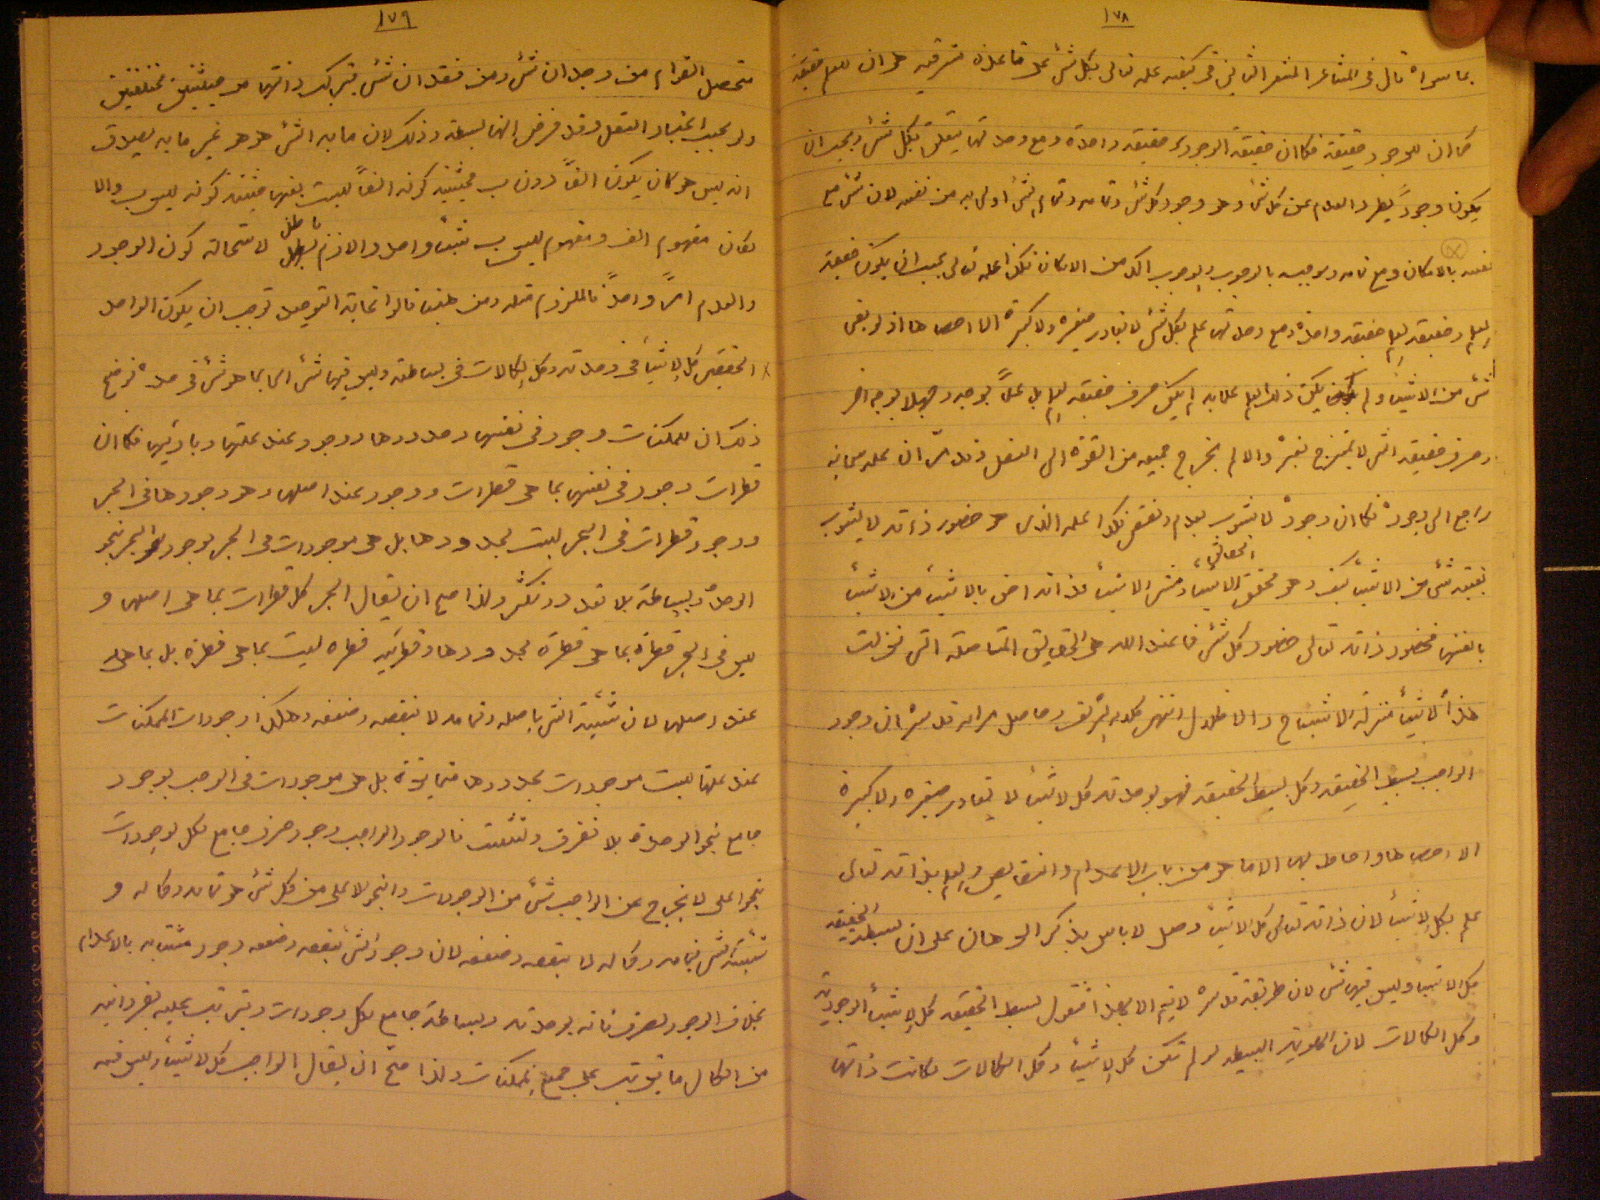 ١٧٨
بما سواه قال فى المشاعر المشعر الثانى فى كيفية علمه تعالى بكل شئ على قاعدة مشرقيه هى ان للعلم حقيقة
كما ان للوجود حقيقة فكما ان حقيقة الوجود حقيقة واحدة ومع وحدتها يتعلق بكل شئ ويجب ان
يكون وجوداً يطرد العدم عن كل شئ وهو وجود كل شئ وتمامه وتمام الشئ اولى به من نفسه لان الشئ مع
نفسه بالامكان ومع تمامه وموجبه بالوجوب والوجوب اكد من الامكان فكذا علمه تعالى يجب ان يكون حقيقة
العلم وحقيقة العلم حقيقة واحدة ومع وحدتها علم بكل شئ لا يغادر صغيرة ولا كبيرة الا احصاها اذ لو بقى
شئ من الاشياء ولم يكن ذلك العلم علما به لم يكن صرف حقيقة العلم بل علماً بوجه وجهلا بوجه آخر
وصرف حقيقة الشئ لا يمتزج بغيره والا لم يخرج جميعه من القوة الى الفعل وقد مرّ ان علمه سبحانه
راجع الى وجوده فكما ان وجوده لا يشوب بعدم ونقص فكذا علمه الذى هو حضور ذاته لا يشوب
بغيبة شئ من الاشياء كيف وهو محقق الحقائق ومشئ الاشياء فذاته احق بالاشياء من الاشياء
بانفسها فحضور ذاته تعالى حضور كل شئ فما عند الله هى الحقايق المتاصلة التى نزلت
هذه الاشياء منزلة الاشباح والاظلال انتهى كلامه الشريف وحاصل مرامه قدس سره ان وجود
الواجب بسيط الحقيقة وكل بسيط الحقيقة فهو بوحدته كل الاشياء لا يغادر صغيرة ولا كبيرة
الا احصاها واحاط بها الا ما هو من باب الاعدام والنقايص والعلم بذاته تعالى
علم بكل الاشياء لان ذاته تعالى كل الاشياء وصل لا باس بذكر البرهان على ان بسيط الحقيقة
كل الاشياء وليس فيها شئ لان طريقة قدس سره لا يتم الا بهذا فنقول بسيط الحقيقة كل الاشياء الوجودية
وكل الكمالات لان الهوية البسيطة لو لم تكن كل الاشياء وكل الكمالات لكانت ذاتها
١٧٩
متحصل القوام من وجدان شئ ومن فقدان شئ فيتركب ذاتها من حيثيتين مختلفتين
ولو بحسب اعتبار العقل وقد فرض انها بسيطة وذلك لان ما به الشئ هو هو غير ما به يصدق
انه ليس هو كان يكون الفاً دون ب فحيثية كونه الفاً ليست بعينها حيثية كونه ليس ب والا
لكان مفهوم الف ومفهوم ليس ب شيئاً واحداً واللازم باطل لاستحالة كون الوجود
والعدم امراً واحداً فالملزوم مثله ومن هيهنا قالوا غاية التوحيد توجب ان يكون الواحد
الحقيقى كل الاشياء فى وحدته وكل الكمالات فى بساطته وليس فيها شئ اى بما هو شئ فى حده توضيح
ذلك ان للممكنات وجود فى نفسها وحدودها ووجود عند علتها وبارئيها فكما ان
قطرات وجود فى نفسها بما هى قطرات ووجود عند اصلها وهو وجودها فى البحر
ووجود قطرات فى البحر ليست بحدودها بل هى موجودات فى البحر بوجود البحر بنحو
الوحدة وبساطة بلا تعدد وتكثر ولذا صح ان يقال البحر كل قطرات بما هى اصلها و
ليس فى البحر قطرة بما هى قطرة بحدودها وقطرية قطرة ليست بما هى قطرة بل بما هى
عند اصلها لان شيئية الشئ باصله وتمامه لا بنقصه وضعفه وهكذا وجودات الممكنات
عند علتها ليست موجودات بحدودها متمايزة بل هى موجودات فى الواجب بوجود
جامع بنحو الوحدة بلا تفرق وتشتت فالوجود الواجب وجود صرف جامع لكل الوجودات
بنحو اعلى لا يخرج عن الواجب شئ من الوجودات والنحو الاعلى من كل شئ هو تمامه وكماله و
شيئية الشئ بتمامه وكماله لا بنقصه وضعفه لان وجود الشئ بنقصه وضعفه وجود متشابه بالاعدام
بخلاف الوجود الصرف فانه بوحدته وبساطته جامع لكل وجودات ويترتب عليه بفردانيته
من الكمال ما يترتب على جميع الممكنات ولذا صحّ ان يقال الواجب كل الاشياء وليس فيه